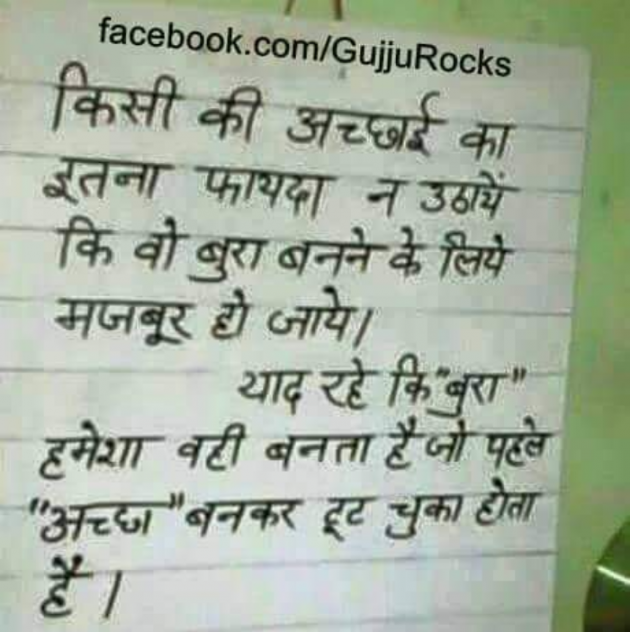 facebook.com/GujjuRocks
किसी की अच्छाई का
इतना फायदा न उठायें
कि वो बुरा बनने के लिये
मजबूर हो जाये।
याद रहे कि "बुरा"
हमेशा वही बनता है जो पहले
"अच्छा" बनकर टूट चुका होता
है।